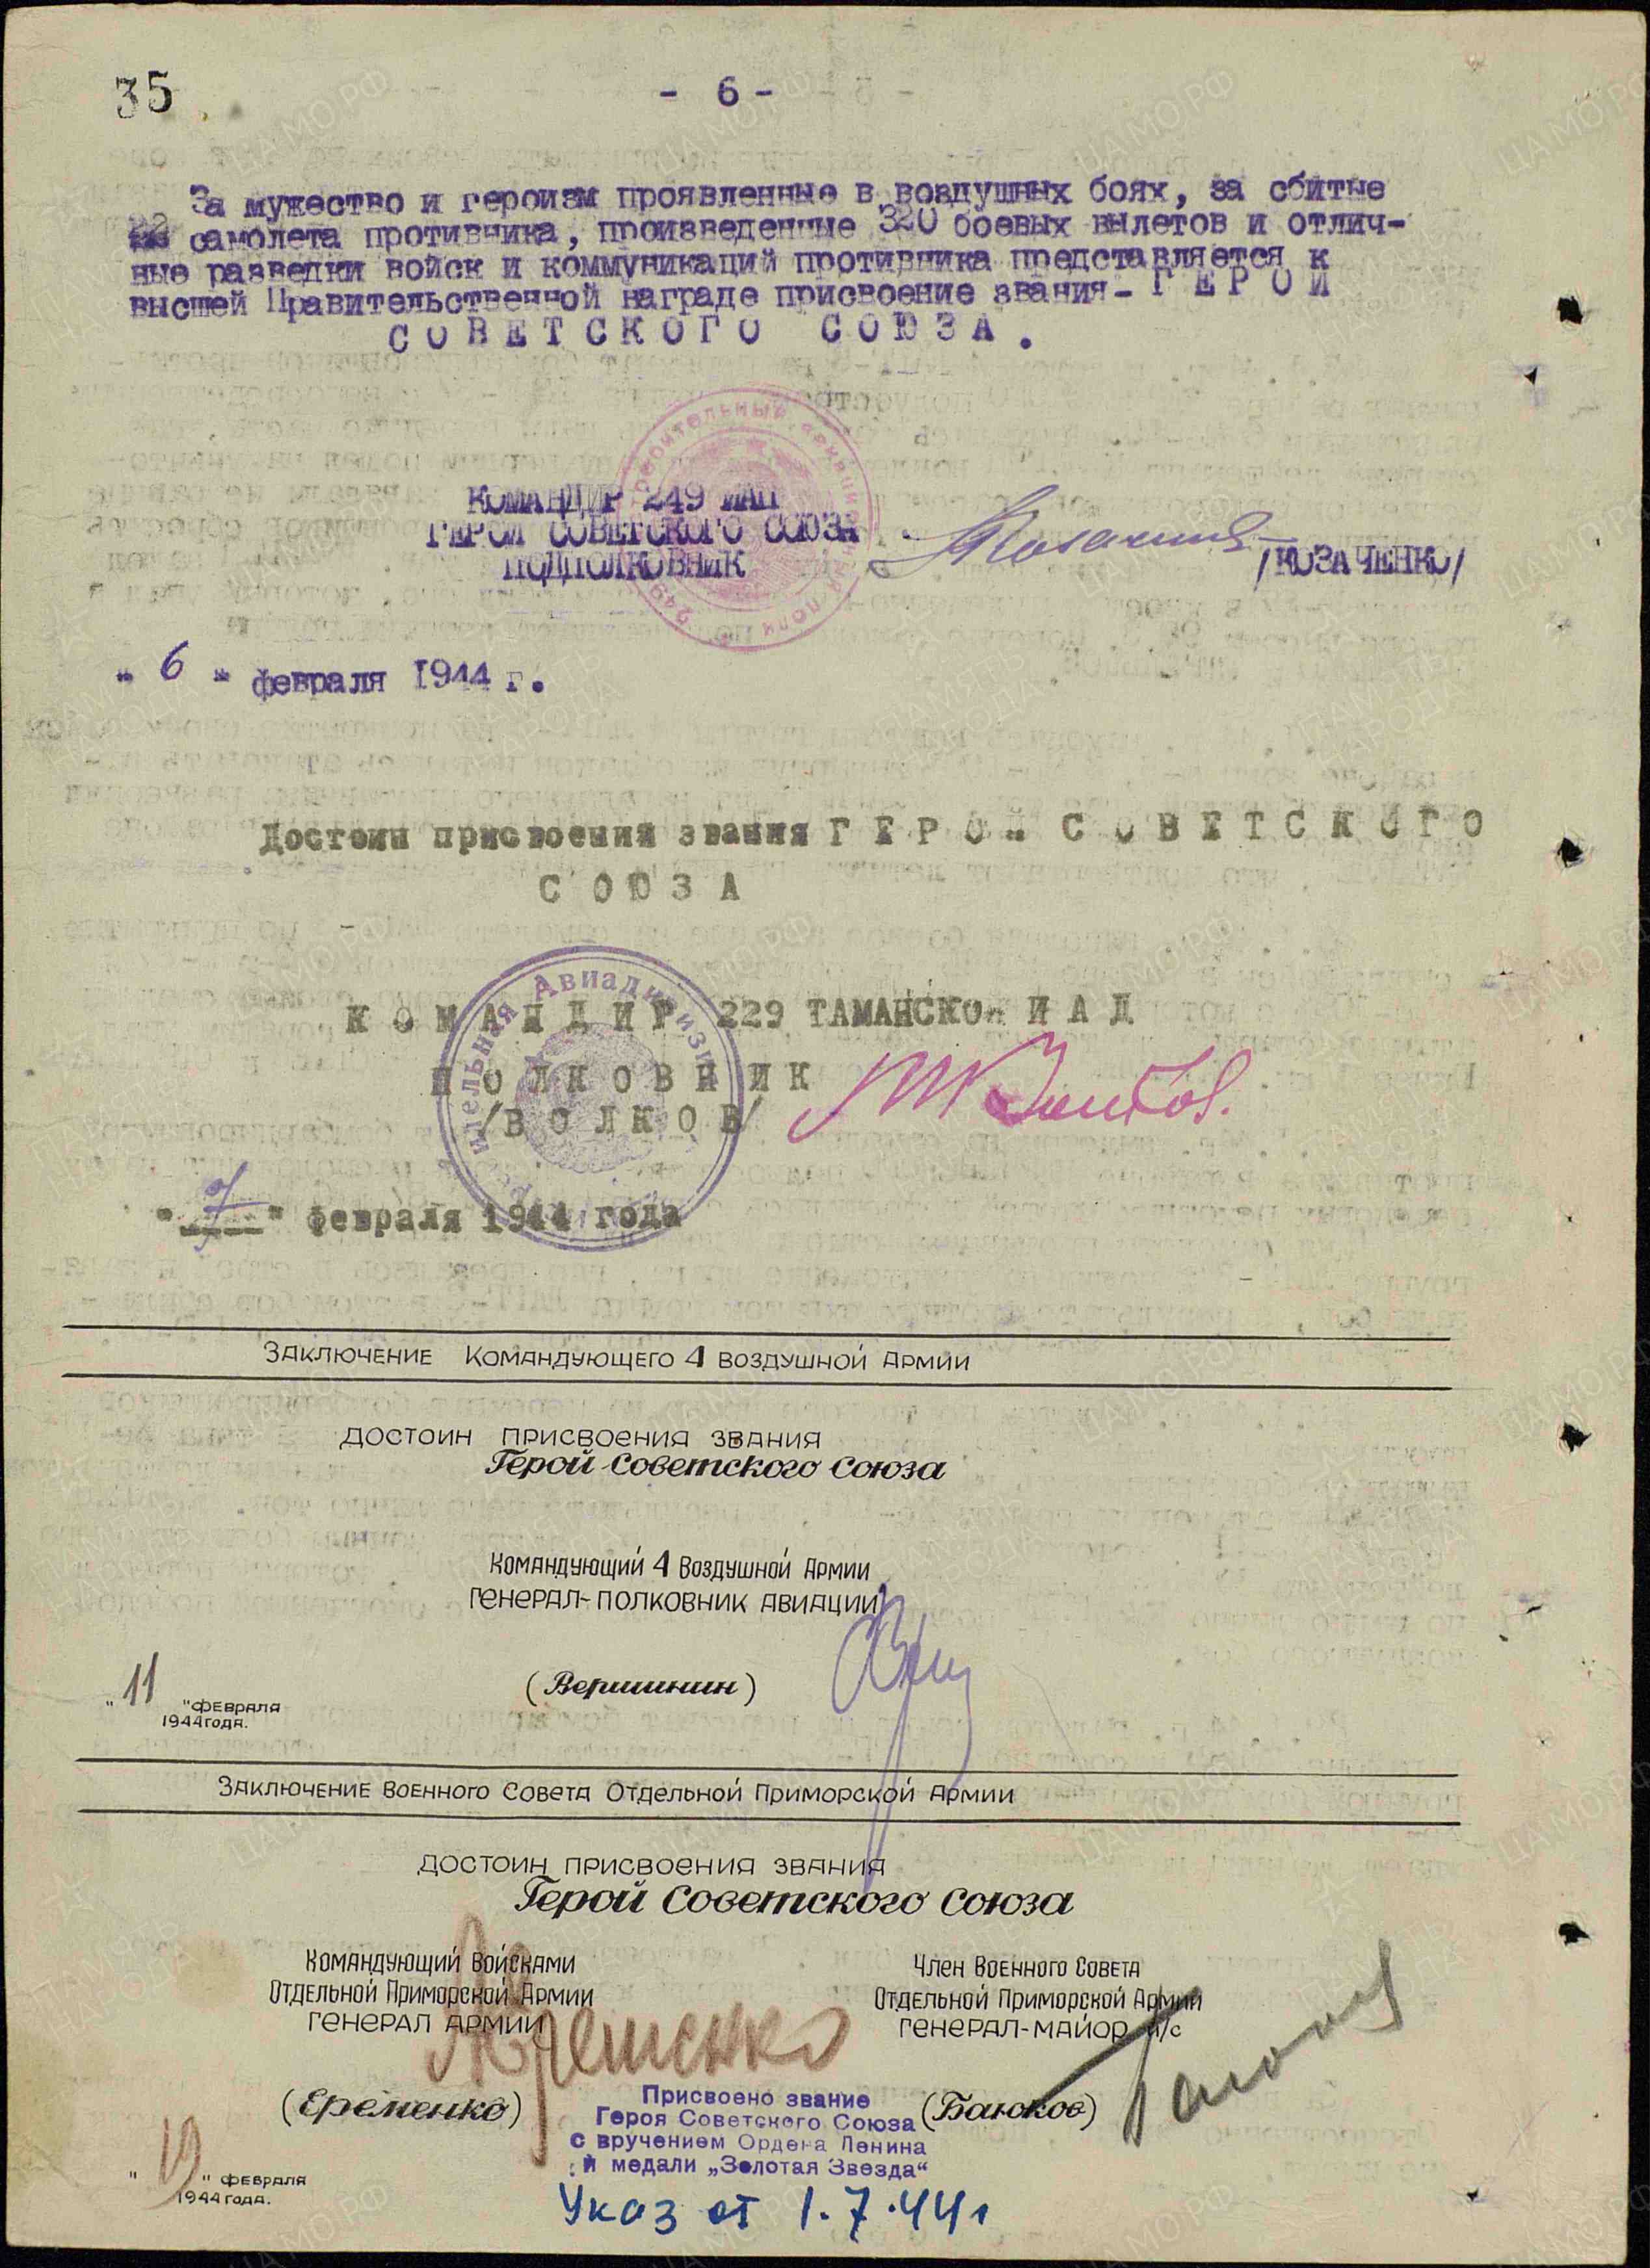 35
- 6 -
За мужество и героизм проявленные в воздушных боях, за сбитые
22 самолета противника, произведенные 320 боевых вылетов и отлич-
ные разведки войск и коммуникаций противника представляется к
высшей Правительственной награде присвоение звания- Г Е Р О Й
С О В Е Т С К О Г О С О Ю З А .
КОМАНДИР 249 ИАП
ГЕРОЙ СОВЕТСКОГО СОЮЗА
ПОДПОЛКОВНИК
/КОЗАЧЕНКО/
" 6 " февраля 1944 г.
Достоин присвоения звания Г Е Р О Й С О В Е Т С К О Г О
С О Ю З А
К О М А Н Д И Р 229 ТАМАНСКОЙ И А Д
П О Л К О В Н И К
/В О Л К О В/
" 7 " февраля 1944 года
Заключение Командующего 4 воздушной Армии
достоин присвоения звания
Герой Советского Союза
Командующий 4 Воздушной Армии
генерал-полковник авиации
(Вершинин)
" 11 " февраля
1944 года.
Заключение Военного Совета Отдельной Приморской Армии
достоин присвоения звания
Герой Советского Союза
Командующий войсками
Отдельной Приморской Армии
генерал армии
Еременко
(Еременко)
Член Военного Совета
Отдельной Приморской Армии
генерал-майор и/с
(Баюков)
Присвоено звание
Героя Советского Союза
с вручением Ордена Ленина
и медали „Золотая Звезда“
Указ от 1.7.44г
" 19 " февраля
1944 года.